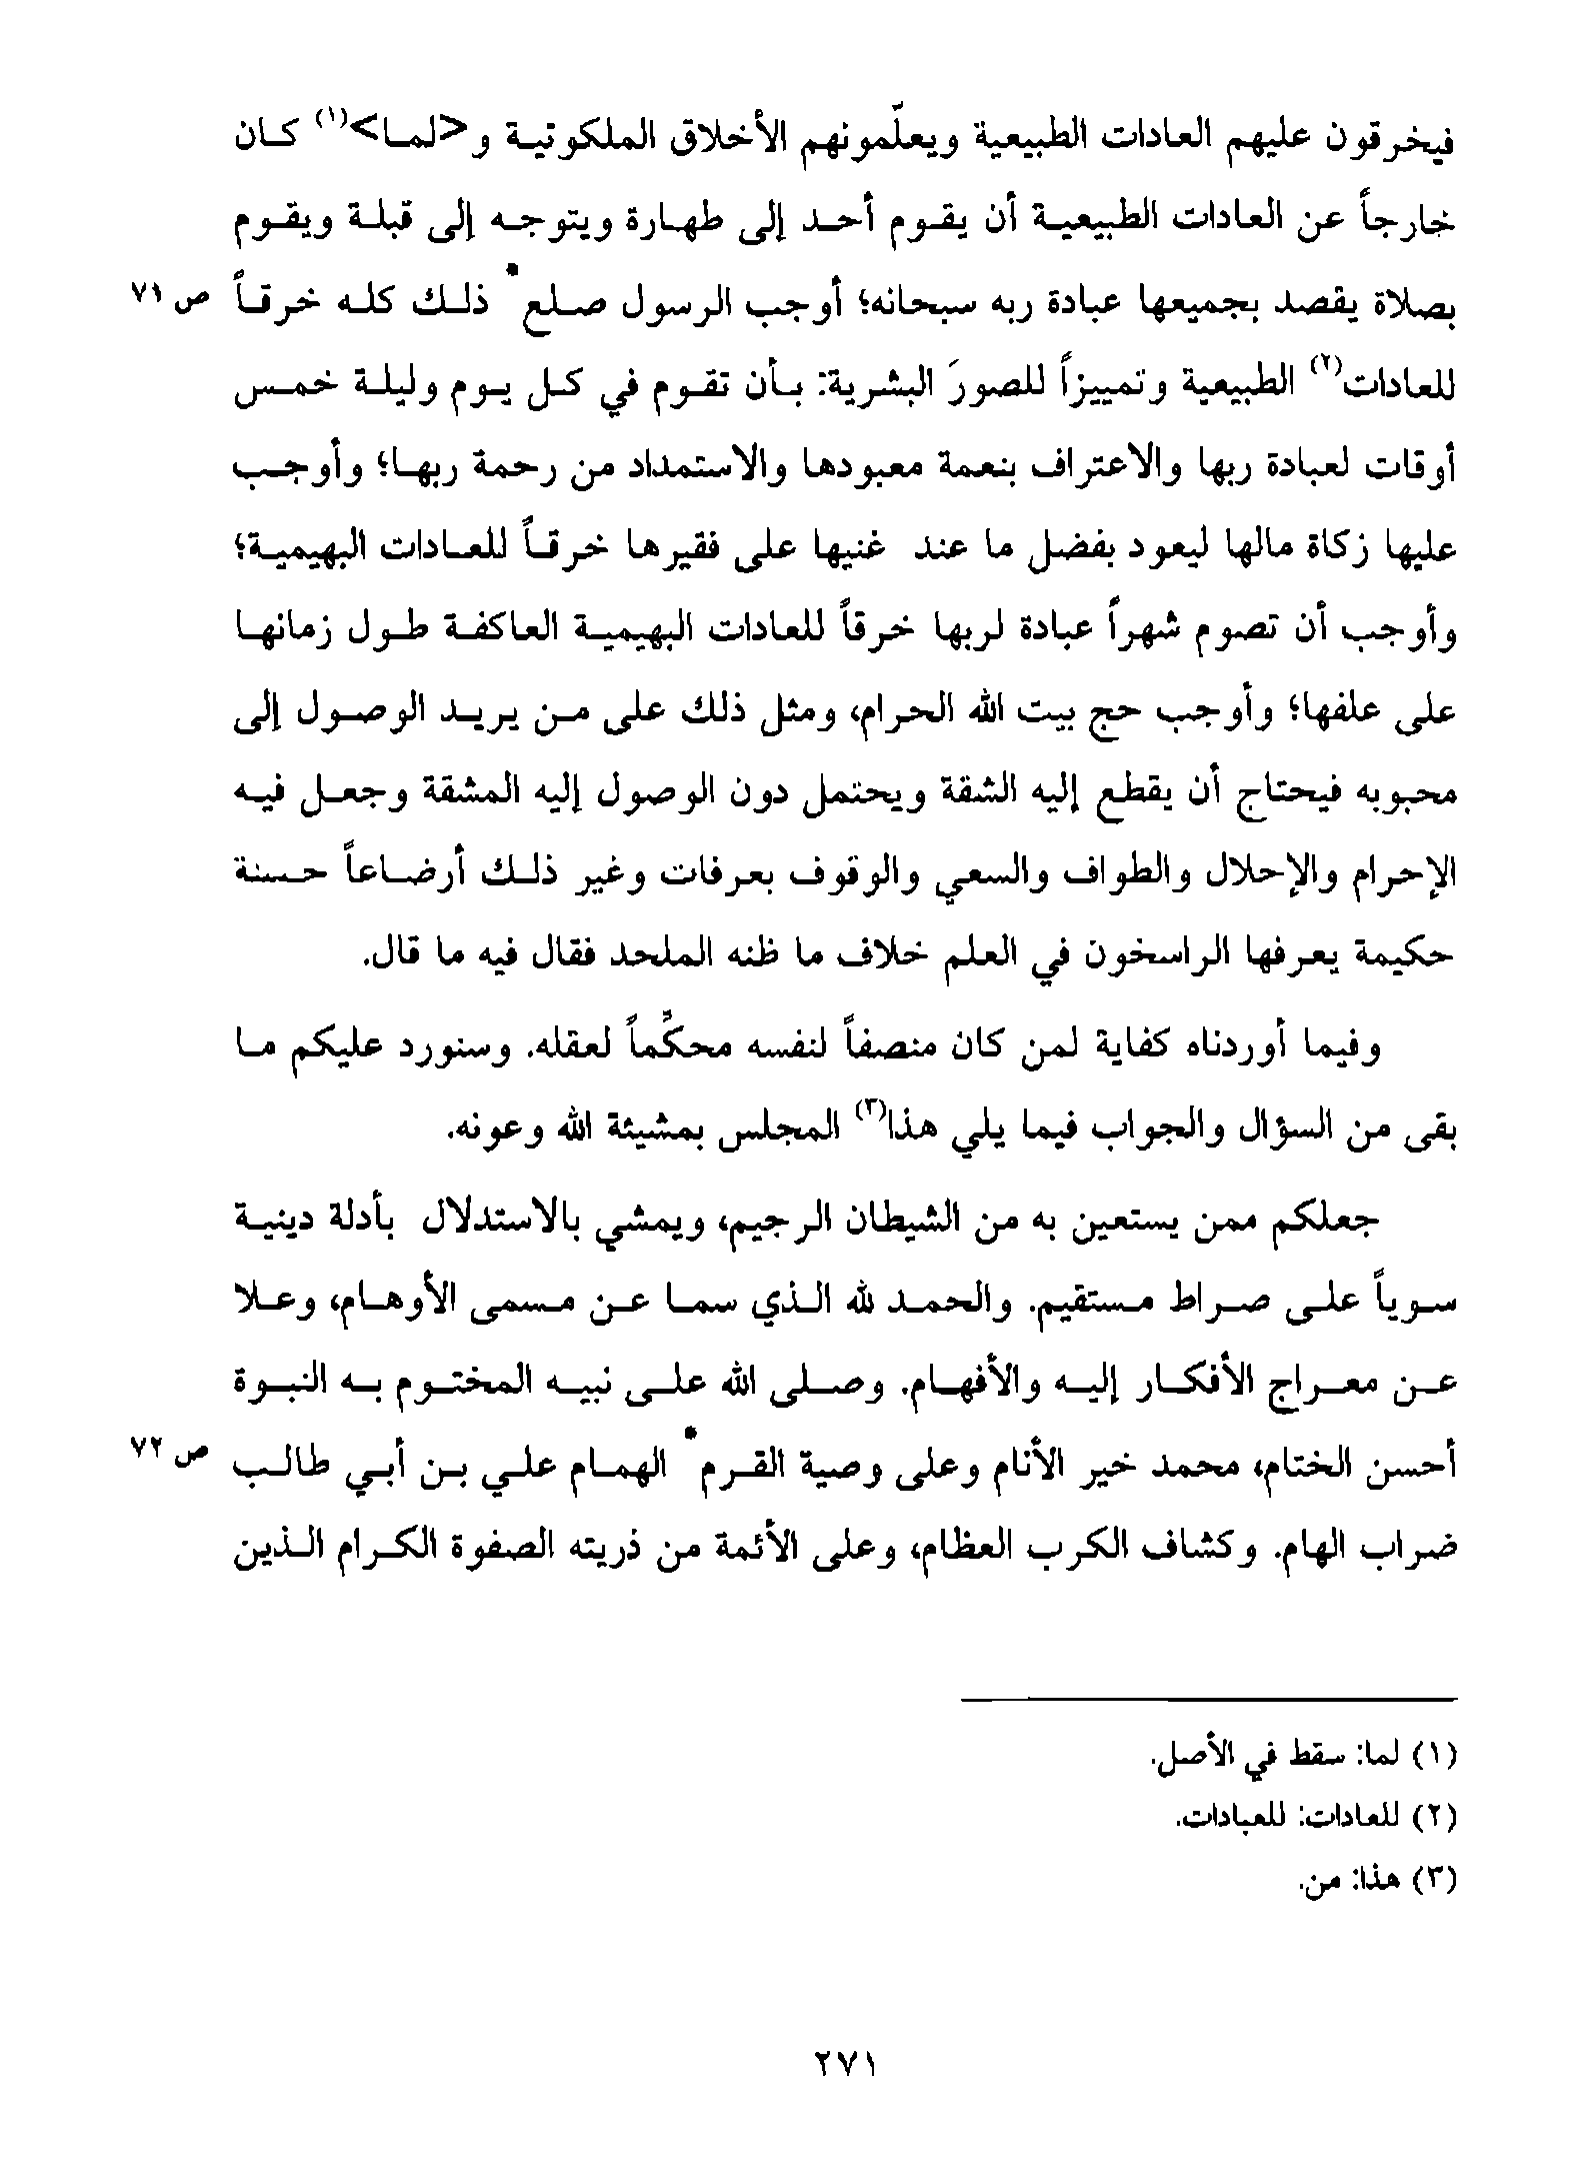 فيخرقون عليهم العادات الطبيعية ويعلّمونهم الأخلاق الملكوتية و<لما>(١) كان
خارجاً عن العادات الطبيعية أن يقوم أحد إلى طهارة ويتوجه إلى قبلة ويقوم
بصلاة يقصد بجميعها عبادة ربه سبحانه؛ أوجب الرسول صلع* ذلك كله خرقاً ص ٧١
للعادات(٢) الطبيعية وتمييزاً للصورَ البشرية: بأن تقوم في كل يوم وليلة خمس
أوقات لعبادة ربها والاعتراف بنعمة معبودها والاستمداد من رحمة ربها؛ وأوجب
عليها زكاة مالها ليعود بفضل ما عند غنيها على فقيرها خرقاً للعادات البهيمية؛
وأوجب أن تصوم شهراً عبادة لربها خرقاً للعادات البهيمية العاكفة طول زمانها
على علفها؛ وأوجب حج بيت الله الحرام، ومثل ذلك على من يريد الوصول إلى
محبوبه فيحتاج أن يقطع إليه الشقة ويحتمل دون الوصول إليه المشقة وجعل فيه
الإحرام والإحلال والطواف والسعي والوقوف بعرفات وغير ذلك أرضاعاً حسنة
حكيمة يعرفها الراسخون في العلم خلاف ما ظنه الملحد فقال فيه ما قال.
وفيما أوردناه كفاية لمن كان منصفاً لنفسه محكِّماً لعقله. وسنورد عليكم ما
بقى من السؤال والجواب فيما يلي هذا(٣) المجلس بمشيئة الله وعونه.
جعلكم ممن يستعين به من الشيطان الرجيم، ويمشي بالاستدلال بأدلة دينية
سوياً على صراط مستقيم. والحمد لله الذي سما عن مسمى الأوهام، وعلا
عن معراج الأفكار إليه والأفهام. وصلى الله على نبيه المختوم به النبوة
أحسن الختام، محمد خير الأنام وعلى وصية القرم* الهمام علي بن أبي طالب ص ٧٢
ضراب الهام. وكشاف الكرب العظام، وعلى الأئمة من ذريته الصفوة الكرام الذين
(١) لما: سقط في الأصل.
(٢) للعادات: للعبادات.
(٣) هذا: من.
٢٧١